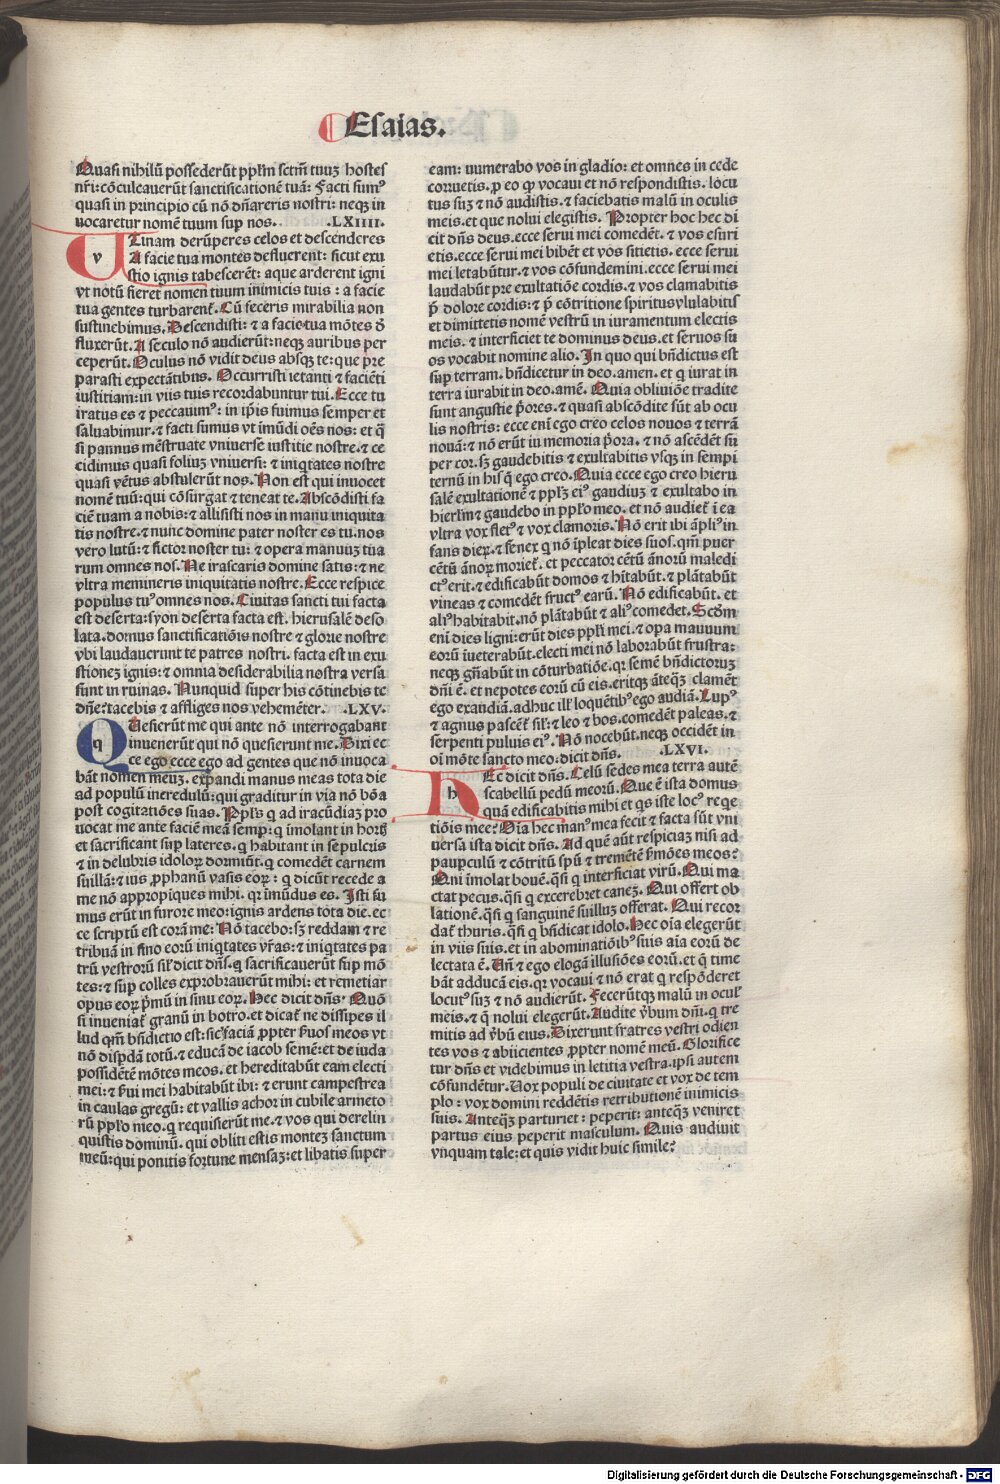 Esaias.
Quasi nihilū possederūt pplm̄ sctm̄ tuuꝫ hostes
nr̄i: cōculcauerūt sanctificationē tuā: Facti sumꝰ
quasi in principio cū nō dn̄areris nostri: neqꝫ in
uocaretur nomē tuum sup nos. .LXIIII.
UTinam derūperes celos et descenderes
A facie tua montes defluerent: sicut exu
stio ignis tabescerēt: aque arderent igni
vt notū fieret nomen tuum inimicis tuis : a facie
tua gentes turbarent̄. Cū feceris mirabilia non
sustinebimus. Descendisti: ⁊ a facie tua mōtes d̄
fluxerūt. A seculo nō audierūt: neqꝫ auribus per
ceperūt. Oculus nō vidit deus absqꝫ te: que pre
parasti expectātibus. Occurristi letanti ⁊ faciēti
iustitiam: in viis tuis recordabuntur tui. Ecce tu
iratus es ⁊ peccauimꝰ: in ip̄is fuimus semper et
saluabimur. ⁊ facti sumus vt imūdi oēs nos: et q̄
si pannus mēstruate vniuerse iustitie nostre. ⁊ ce
cidimus quasi foliuꝫ vniuersi: ⁊ iniq̇tates nostre
quasi vētus abstulerūt nos. Non est qui inuocet
nomē tuū: qui cōsurgat ⁊ teneat te. Abscōdisti fa
ciē tuam a nobis: ⁊ allisisti nos in manu iniquita
tis nostre. ⁊ nunc domine pater noster es tu. nos
vero lutū: ⁊ fictor noster tu: ⁊ opera manuuꝫ tua
rum omnes nos. Ne irascaris domine satis: ⁊ ne
vltra memineris iniquitatis nostre. Ecce respice
populus tuꝰ omnes nos. Ciuitas sancti tui facta
est deserta: syon deserta facta est. hierusalē deso
lata. domus sanctificatiōis nostre ⁊ glorie nostre
vbi laudauerunt te patres nostri. facta est in exu
stioneꝫ ignis: ⁊ omnia desiderabilia nostra versa
sunt in ruinas. Nunquid super his cōtinebis te
dn̄e: tacebis ⁊ affliges nos vehemēter. .LXV.
QUesierūt me qui ante nō interrogabant
inuenerūt qui nō quesierunt me. Dixi ec
ce ego. ecce ego ad gentes que nō inuoca
bāt nomen meuꝫ. expandi manus meas tota die
ad populū incredulū: qui graditur in via nō bōa
post cogitatiōes suas. Ppl̄s q ad iracūdiaꝫ pro
uocat me ante faciē meā semp: q īmolant in hort̄
et sacrificant sup lateres. q habitant in sepulcris
⁊ in delubris idoloꝝ dormiūt. q comedēt carnem
suillā: ⁊ ius ꝓphanū vasis eoꝝ: q dicūt recede a
me nō appropiques mihi. qꝛ imūdus es. Isti fu
mus erūt in furore meo: ignis ardens tota die. ec
ce scriptū est corā me: Nō tacebo: sꝫ reddam ⁊ re
tribuā in sino eorū iniq̇tates vr̄as: ⁊ iniq̇tates pa
trū vestrorū sil̄ dicit dn̄s. q sacrificauerūt sup mō
tes: ⁊ sup colles exprobrauerūt mihi: et remetiar
opus eoꝝ p̄mū in sinu eoꝝ. Hec dicit dn̄s. Quō
si inueniat̄ granū in botro. et dicat̄ ne dissipes il
lud qm̄ bn̄dictio est: sic faciā ꝓpter s̄uos meos vt
nō dispdā totū. ⁊ educā de iacob semē: et de iuda
possidētē mōtes meos. et hereditabūt eam electi
mei: ⁊ s̄ui mei habitabūt ibi: ⁊ erunt campestrea
in caulas gregū: et vallis achor in cubile armeto
rū pplo meo. q requisierūt me. ⁊ vos qui derelin
quistis dominū. qui obliti estis monteꝫ sanctum
meū: qui ponitis fortune mensaꝫ: et libatis super
eam: numerabo vos in gladio: et omnes in cede
corruetis. p eo ꝙ vocaui et nō respondistis. locu
tus suꝫ ⁊ nō audistis. ⁊ faciebatis malū in oculis
meis. et que nolui elegistis. Propter hoc hec di
cit dn̄s deus. ecce serui mei comedēt. ⁊ vos esuri
etis. ecce serui mei bibēt et vos sitietis. ecce serui
mei letabūtur. ⁊ vos cōfundemini. ecce serui mei
laudabūt pre exultatiōe cordis. ⁊ vos clamabitis
p̄ dolore cordis: ⁊ p̄ cōtritione spiritus vlulabitis
et dimittetis nomē vestrū in iuramentum electis
meis. ⁊ interficiet te dominus deus. et seruos su
os vocabit nomine alio. In quo qui bn̄dictus est
sup terram. bn̄dicetur in deo. amen. et q iurat in
terra iurabit in deo. amē. Quia obliuiōe tradite
sunt angustie p̄ores. ⁊ quasi abscōdite sūt ab ocu
lis nostris: ecce enī ego creo celos nouos ⁊ terrā
nouā: ⁊ nō erūt iu memoria p̄ora. ⁊ nō ascēdēt su
per cor. sꝫ gaudebitis ⁊ exultabitis vsqꝫ in sempi
ternū in his q̄ ego creo. Quia ecce ego creo hieru
salē exultationē ⁊ pplꝫ eiꝰ gaudiuꝫ ⁊ exultabo in
hierlm̄ ⁊ gaudebo in pplo meo. et nō audiet̄ ī ea
vltra vox fletꝰ ⁊ vox clamoris. Nō erit ibi āpliꝰ in
fans dieꝝ. ⁊ senex q nō īpleat dies suos. qm̄ puer
cētū ānoꝝ moriet̄. et peccator cētū ānorū maledi
ctꝰ erit. ⁊ edificabūt domos ⁊ hītabūt. ⁊ plātabūt
vineas ⁊ comedēt fructꝰ earū. Nō edificabūt. et
aliꝰ habitabit. nō plātabūt ⁊ aliꝰ comedet. Scd̄m
enī dies ligni: erūt dies ppli mei. ⁊ opa mauuum
eorū īueterabūt. electi mei nō laborabūt frustra:
neqꝫ gn̄abūt in cōturbatiōe. qꝛ semē bn̄dictoruꝫ
dn̄i ē. et nepotes eorū cū eis. eritqꝫ āteqꝫ clamēt
ego exaudiā. adhuc ill̄ loquētibꝰ ego audiā. Lupꝰ
⁊ agnus pascēt̄ sil̄: ⁊ leo ⁊ bos. comedēt paleas. ⁊
serpenti puluis eiꝰ. Nō nocebūt. neqꝫ occidēt in
oī mōte sancto meo: dicit dn̄s. .LXVI.
HEc dicit dn̄s. Celū sedes mea terra autē
scabellū pedū meorū. Que ē ista domus
quā edificabitis mihi et qs iste locꝰ reqe
tiōis mee? Oīa hec manꝰ mea fecit ⁊ facta sūt vni
uersa ista dicit dn̄s. Ad quē aūt respiciaꝫ nisi ad
paupculū ⁊ cōtritū spū ⁊ tremētē s̄mōes meos?
Qui īmolat bouē. q̄si q interficiat virū. Qui ma
ctat pecus. q̄si q excerebret caneꝫ. Qui offert ob
lationē. q̄si q sanguinē suilluꝫ offerat. Qui recor
dat̄ thuris. q̄si q bn̄dicat idolo. Hec oīa elegerūt
in viis suis. et in abominatiōibꝰ suis aīa eorū de
lectata ē. Un̄ ⁊ ego elogā illusiōes eorū. et q̄ time
bāt adducā eis. qꝛ vocaui ⁊ nō erat q respōderet
locutꝰ suꝫ ⁊ nō audierūt. Fecerūtqꝫ malū in ocul̄
meis. ⁊ q̄ nolui elegerūt. Audite v̄bum dn̄i. q tre
mitis ad v̄bū eius. Dixerunt fratres vestri odien
tes vos ⁊ abiicientes ꝓpter nomē meū. Glorifice
tur dn̄s et videbimus in letitia vestra. ipsi autem
cōfundētur. Uox populi de ciuitate et vox de tem
plo : vox domini reddētis retributionē inimicis
suis. Anteqꝫ parturiet : peperit: anteqꝫ veniret
partus eius peperit masculum. Quis audiuit
vnquam tale: et quis vidit huic simile?
Digitalisierung gefördert durch die Deutsche Forschungsgemeinschaft - DFG